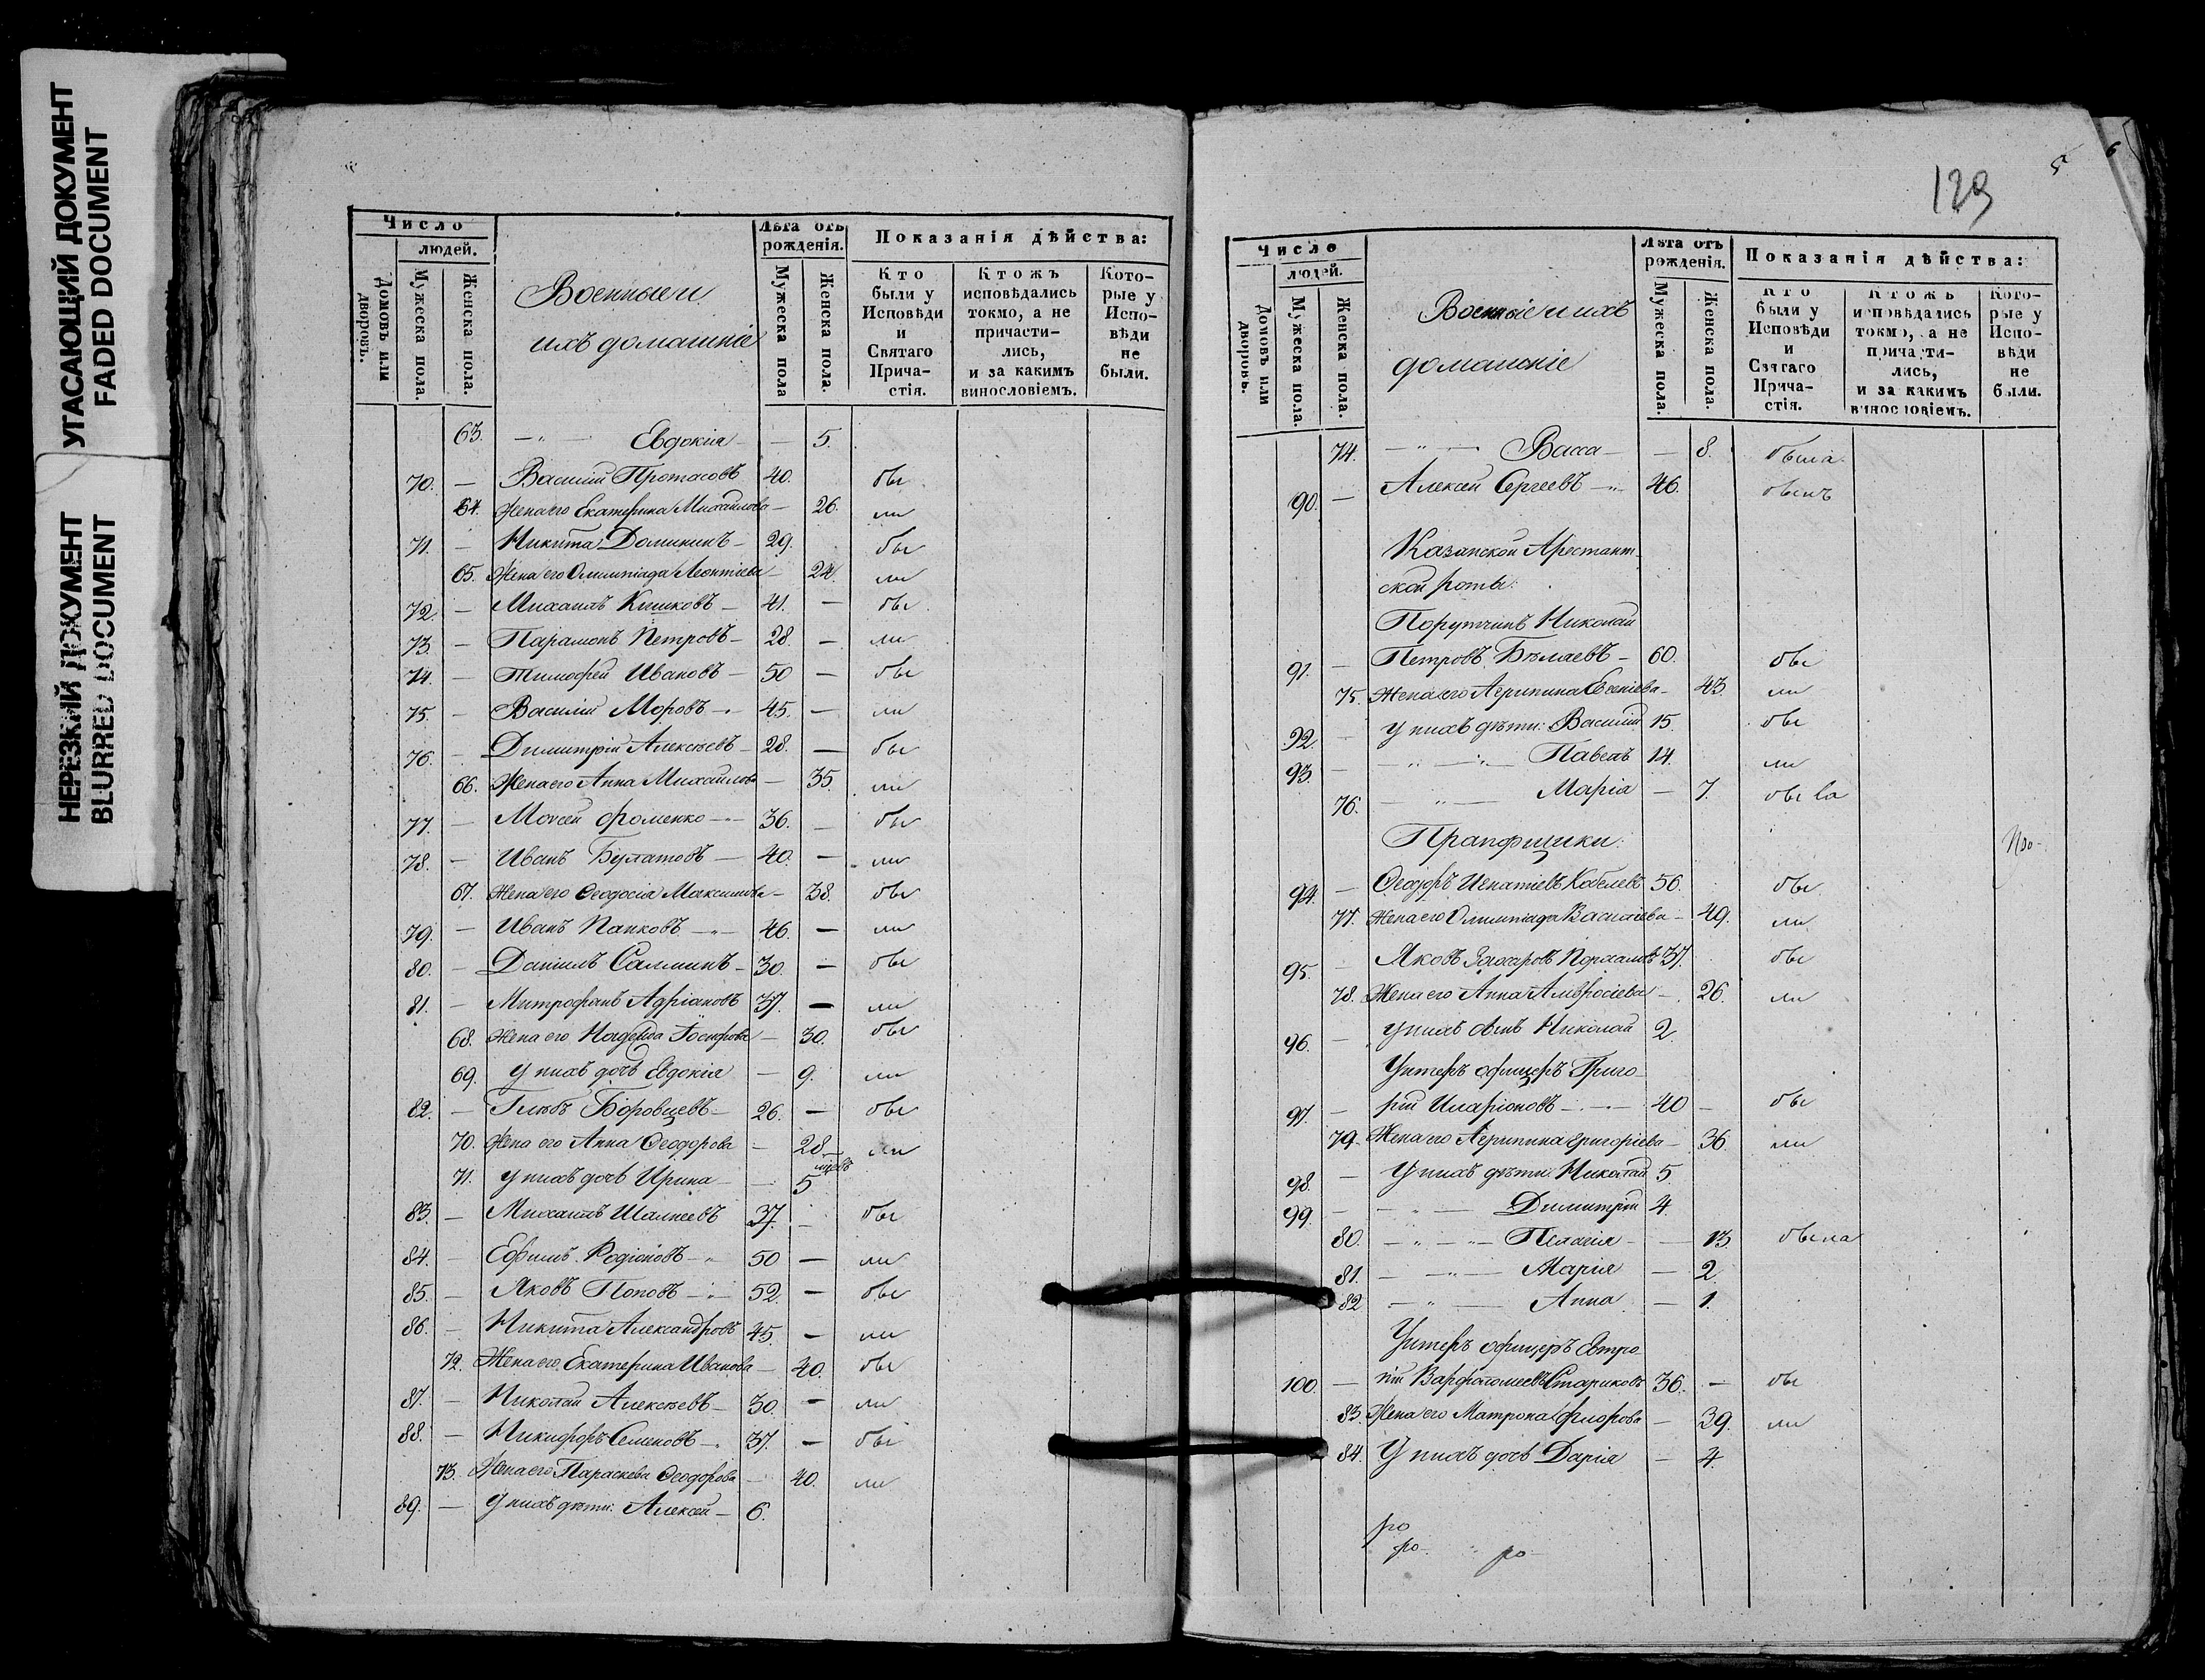 УГАСАЮЩИЙ ДОКУМЕНТ
FADED DOCUMENT
НЕРЕЗКИЙ ДОКУМЕНТ
BLURRED DOCUMENT
Число
людей.
Домовъ или дворовъ.
Мужеска пола.
Женска пола.
Военныи и
ихъ домашніе
Лѣта отъ рожденія.
Мужеска пола
Женска пола.
Показанія дѣйства:
Кто были у Исповѣди и Святаго Прича-стія.
Ктожъ исповѣдались токмо, а не причасти-лись, и за какимъ винословіемъ.
Кото-рые у Испо-вѣди не были.
63. — „ — Евдокія — — 5.
70. — Василій Протасовъ 40. бы
64. Жена его Екатерина Михайлова — 26. ли
71. — Никита Доминин — 29. бы
65. Жена его Олимпіада Леонтіева — 24. ли
72. — Михаилъ Кишковъ — 41. — бы
73. — Парамонъ Петровъ — 28. — ли
74. — Тимофей Ивановъ — 50 — бы
75. — Василій Моровъ — 45. — ли
76. — Димитрій Алексѣевъ — 28. — бы
66. Жена его Анна Михайлова — 35. ли
77. — Моисей Фоменко — 36. — бы
78. — Иванъ Булатовъ — 40. — ли
67. Жена его Ѳеодосія Максимова — 38. бы
79. — Иванъ Папковъ — 46. — ли
80. — Даніилъ Салминъ — 30. — бы
81. — Митрофанъ Адріановъ 37. — ли
68. Жена его Надежда Іосифова — 30. бы
69. У нихъ дочь Евдокія — 9. ли
82. — Глѣбъ Боровцевъ — 26. — бы
70. Жена его Анна Ѳеодорова — 28 — ли
71. У нихъ дочь Ирина — — 5
83. — Михаилъ Шалнеевъ 37. — бы
84. — Ефимъ Родіоновъ — 50 — ли
85. — Яковъ Поповъ — 52. — бы
86. — Никита Александровъ 45. — ли
72. Жена его Екатерина Иванова — 40. бы
87. — Николай Алексѣевъ — 30. — ли
88. — Никифоръ Семеновъ — 37. — бы
73. Жена его Параскева Ѳеодорова — 40. ли
89. — У нихъ дѣти: Алексей — 6.
129
5
6
Число
людей.
Домовъ или дворовъ.
Мужеска пола.
Женска пола.
Военніе и ихъ
домашніе
Лѣта отъ рожденія.
Мужеска пола.
Женска пола.
Показанія дѣйства:
Кто были у Исповѣди и Святаго Прича-стія.
Ктожъ исповѣдались токмо, а не причасти-лись, и за какимъ винословіемъ.
Кото-рые у Испо-вѣди не были.
74. — „ — Васса — — 8. была
90. — Алексей Сергеевъ — 46. былъ
Казанской Арестант-
ской роты:
Порутчикъ Николай
91. — Петровъ Бѣлаевъ — 60. бы
75. Жена его Агрипина Евсеніева — 43. ли
92. — У нихъ дѣти: Василій 15. бы
93. — — „ — Павелъ 14. ли
76. — „ — Маріа — 7. была
Прапорщики:
94. — Ѳеодоръ Игнатіевъ Кобелевъ 56. бы
77. Жена его Олимпіада Василіева — 49. ли
95. — Яковъ Захаровъ 37. бы
78. Жена его Анна Амвросіева — 26. ли
96. — У нихъ сынъ Николай 2.
Унтеръ офицеръ Григо-
97. — рій Иларіоновъ — 40 — бы
79. Жена его Агрипина Григоріева — 36 ли
98. — У нихъ дѣти: Николай 5.
99. — — „ — Димитрій 4.
80. — „ — „ — Пелагія — — 13. была
81. — „ — Марія — 2.
82 — „ — Анна — 1.
Унтеръ офицеръ Евтро-
100. — пій Варфоломеевъ Стариковъ 36. — бы
83. Жена его Матрона Флорова — 39. ли
84. У нихъ дочь Дарія — 4.
ро
ро ро